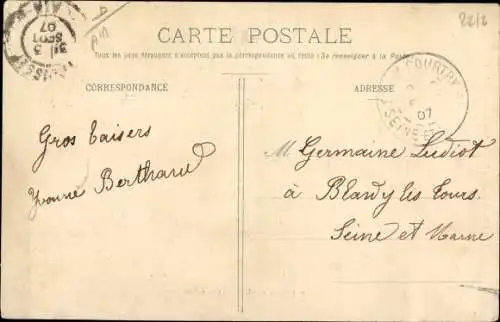 22/6
Ain
CARTE POSTALE
Tous les pays étrangers n'acceptent pas la correspondance au recto (Se renseigner à la Poste)
CORRESPONDANCE
ADRESSE
COURTRY
07
SEINE-ET-
3
SEPT
07
AIN
Gros baisers
Yvonne Berthaud
M Germaine Ludiot
à Blandy les Tours
Seine et Marne